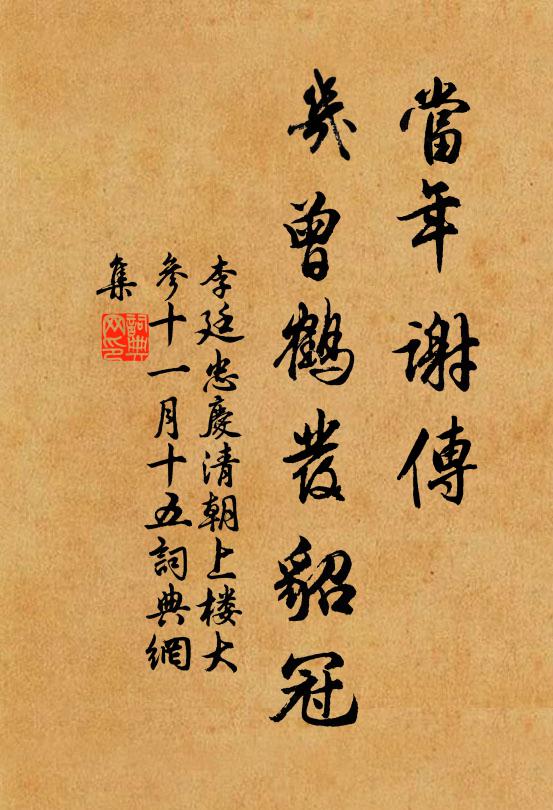 當年謝傅
幾曾鶴發貂冠
李廷忠慶清朝上樓大
參十一月十五詞典網
集
詞典
網印